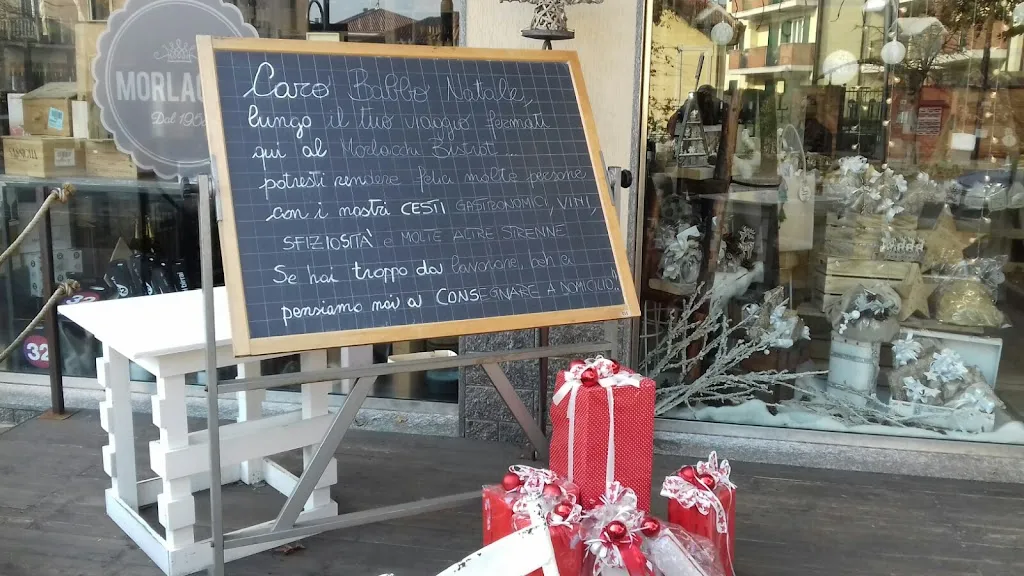 MORLAC
Dal 190
Caro Babbo Natale,
lungo il tuo viaggio fermati
qui al Morlacchi Bistrot ...
potresti rendere felici molte persone
con i nostri CESTI GASTRONOMICI, VINI,
SFIZIOSITÀ e MOLTE ALTRE STRENNE
Se hai troppo da lavorare, beh ci
pensiamo noi a CONSEGNARE A DOMICILIO!
32